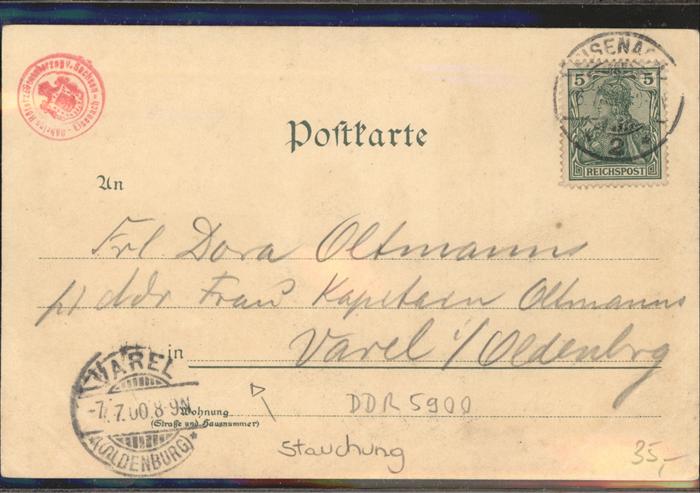 EISENACH
5 5
REICHSPOST
2
Postkarte
An
Frl. Dora Oltmanns
Frau Kapitaen Oltmanns
in Varel i/Oldenbrg
VAREL
-7.7.00.8-9N
*(OLDENBURG)*
Wohnung
(Straße und Hausnummer)
DDR 5900
Stauchung
35,-